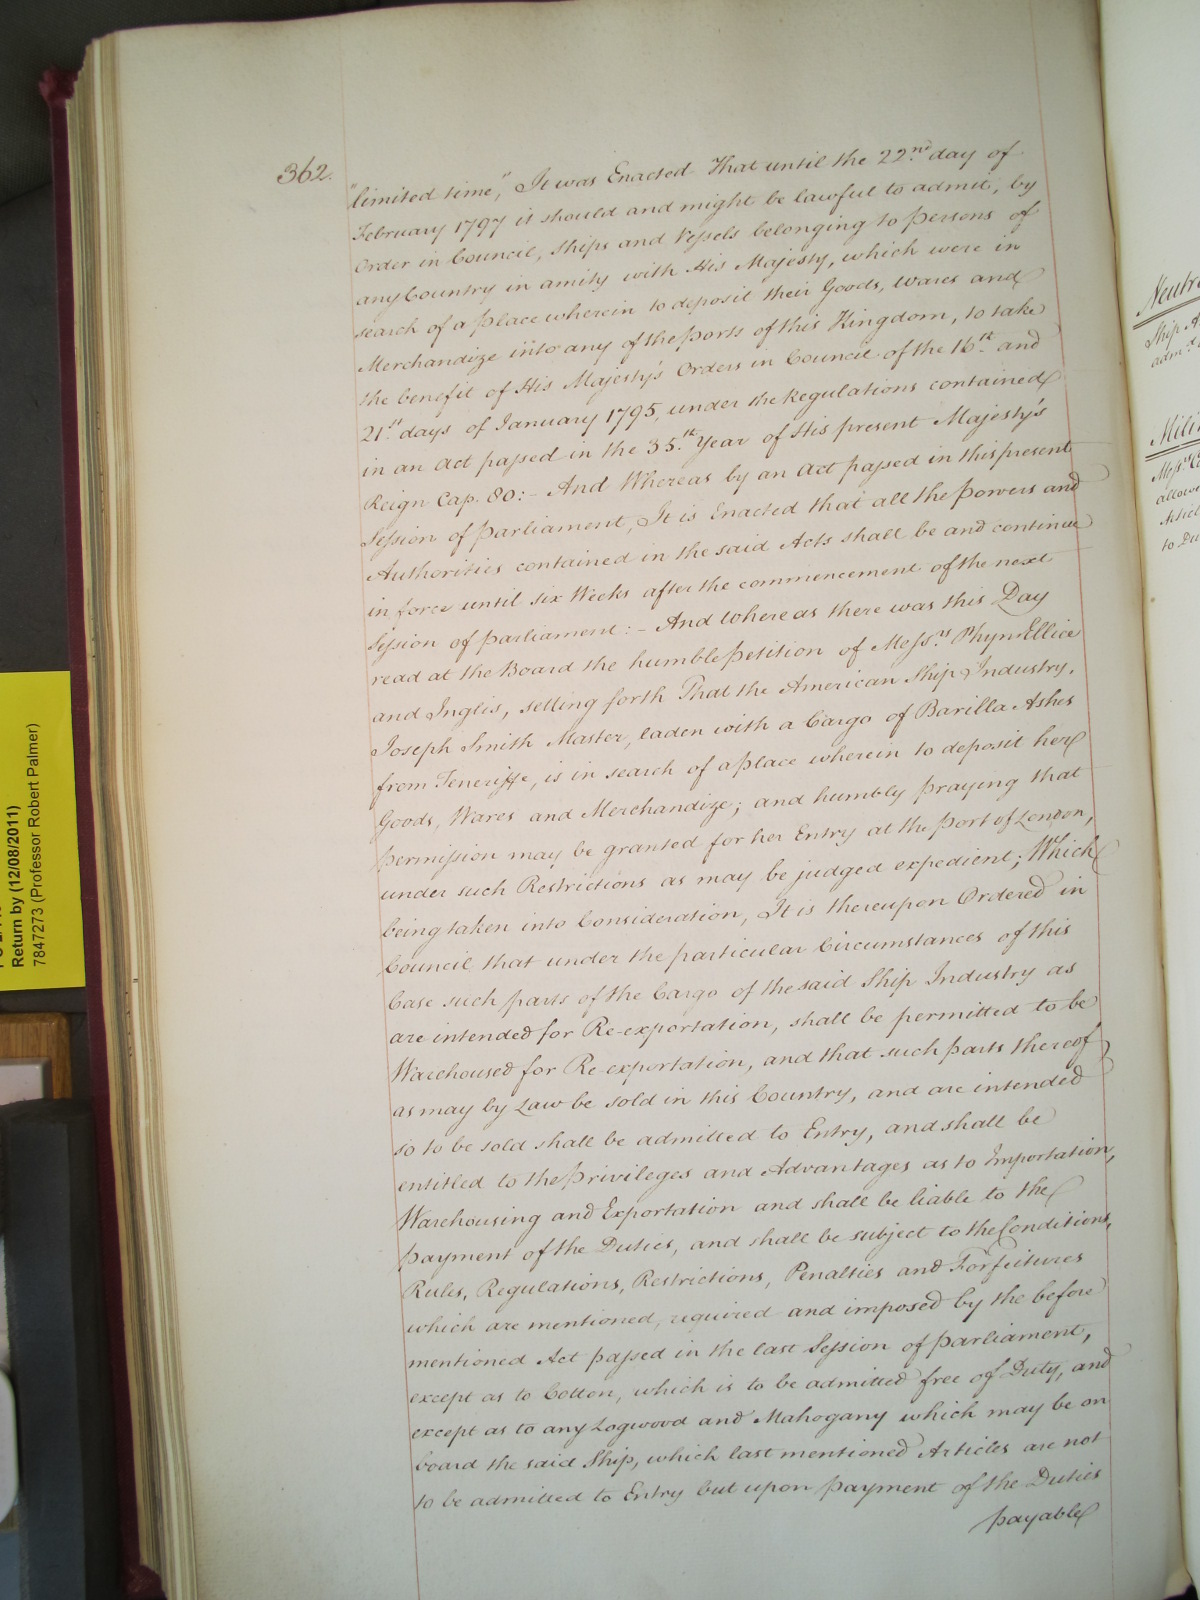 362.
"limited time," It was Enacted That until the 22.nd day of
February 1797 it should and might be lawful to admit, by
Order in Council, Ships and Vessels belonging to persons of
any Country in amity with His Majesty, which were in
search of a place wherein to deposit their Goods, Wares and
Merchandize into any of the ports of this Kingdom, to take
the benefit of His Majesty's Orders in Council of the 16.th and
21.st days of January 1795, under the Regulations contained
in an Act passed in the 35.th Year of His present Majesty's
Reign Cap. 80:- And Whereas by an Act passed in this present
Session of parliament, It is Enacted that all the powers and
Authorities contained in the said Acts shall be and continue
in force until six Weeks after the commencement of the next
Session of parliament:- And Whereas there was this Day
read at the Board the humble petition of Mess.rs Phyn Ellice
and Inglis, setting forth That the American Ship Industry,
Joseph Smith Master, laden with a Cargo of Barilla Ashes
from Teneriffe, is in search of a place wherein to deposit her
Goods, Wares and Merchandize; and humbly praying that
permission may be granted for her Entry at the port of London,
under such Restrictions as may be judged expedient; Which
being taken into Consideration, It is thereupon Ordered in
Council that under the particular Circumstances of this
Case such parts of the Cargo of the said Ship Industry as
are intended for Re-exportation, shall be permitted to be
Warehoused for Re-exportation, and that such parts thereof,
as may by Law be sold in this Country, and are intended
so to be sold shall be admitted to Entry, and shall be
entitled to the privileges and Advantages as to Importation,
Warehousing and Exportation and shall be liable to the
payment of the Duties, and shall be subject to the Conditions,
Rules, Regulations, Restrictions, Penalties and Forfeitures
which are mentioned, required and imposed by the before
mentioned Act passed in the last Session of parliament,
except as to Cotton, which is to be admitted free of Duty, and
except as to any Logwood and Mahogany which may be on
board the said Ship, which last mentioned Articles are not
to be admitted to Entry but upon payment of the Duties
payable
Return by (12/08/2011)
7847273 (Professor Robert Palmer)
Ship
allowe
to Du